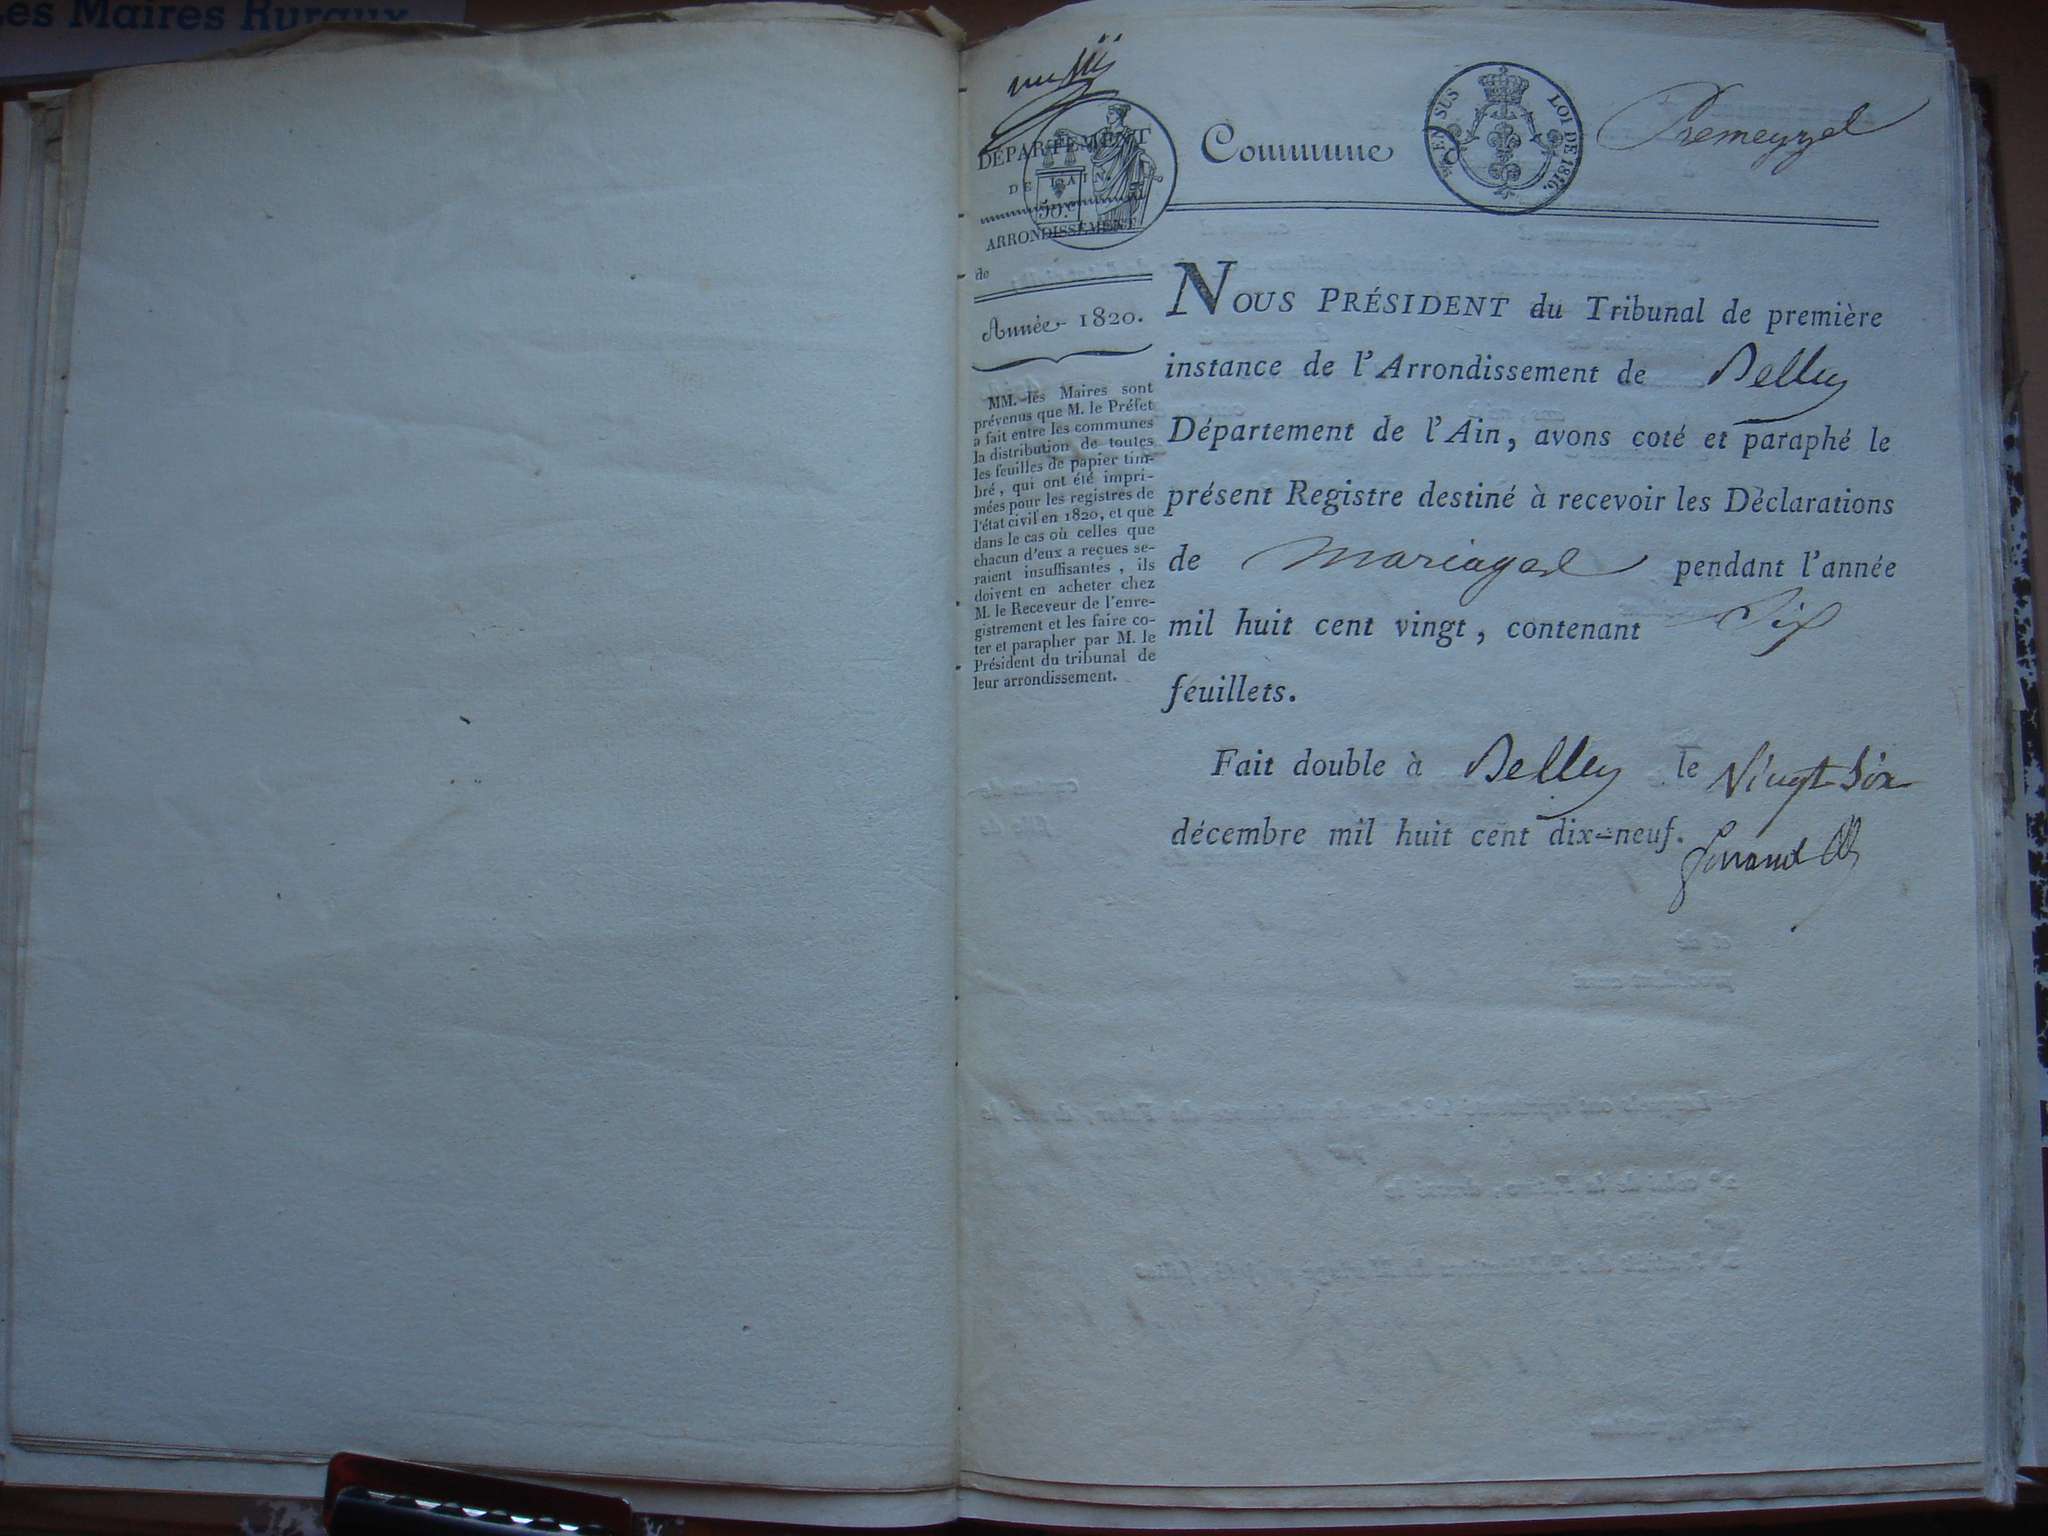 es Maires Ruraux
DÉPARTEMENT
Commune
EN SUS
LOI DE 1816.
Premeyzel
DE L'AIN.
50.c
ARRONDISSEMENT
de
Année 1820.
MM. les Maires sont
prévenus que M. le Préfet
a fait entre les communes
la distribution de toutes
les feuilles de papier tim-
bré, qui ont été impri-
mées pour les registres de
l'état civil en 1820, et que
dans le cas où celles que
chacun d'eux a reçues se-
raient insuffisantes, ils
doivent en acheter chez
M. le Receveur de l'enre-
gistrement et les faire co-
ter et parapher par M. le
Président du tribunal de
leur arrondissement.
NOUS PRÉSIDENT du Tribunal de première
instance de l'Arrondissement de Belley
Département de l'Ain, avons coté et paraphé le
présent Registre destiné à recevoir les Déclarations
de mariages pendant l'année
mil huit cent vingt, contenant Six
feuillets.
Fait double à Belley le Vingt Six
décembre mil huit cent dix-neuf.